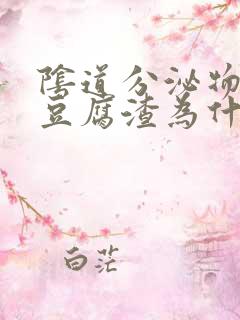 陰道分泌物
豆腐渣為什
白茫